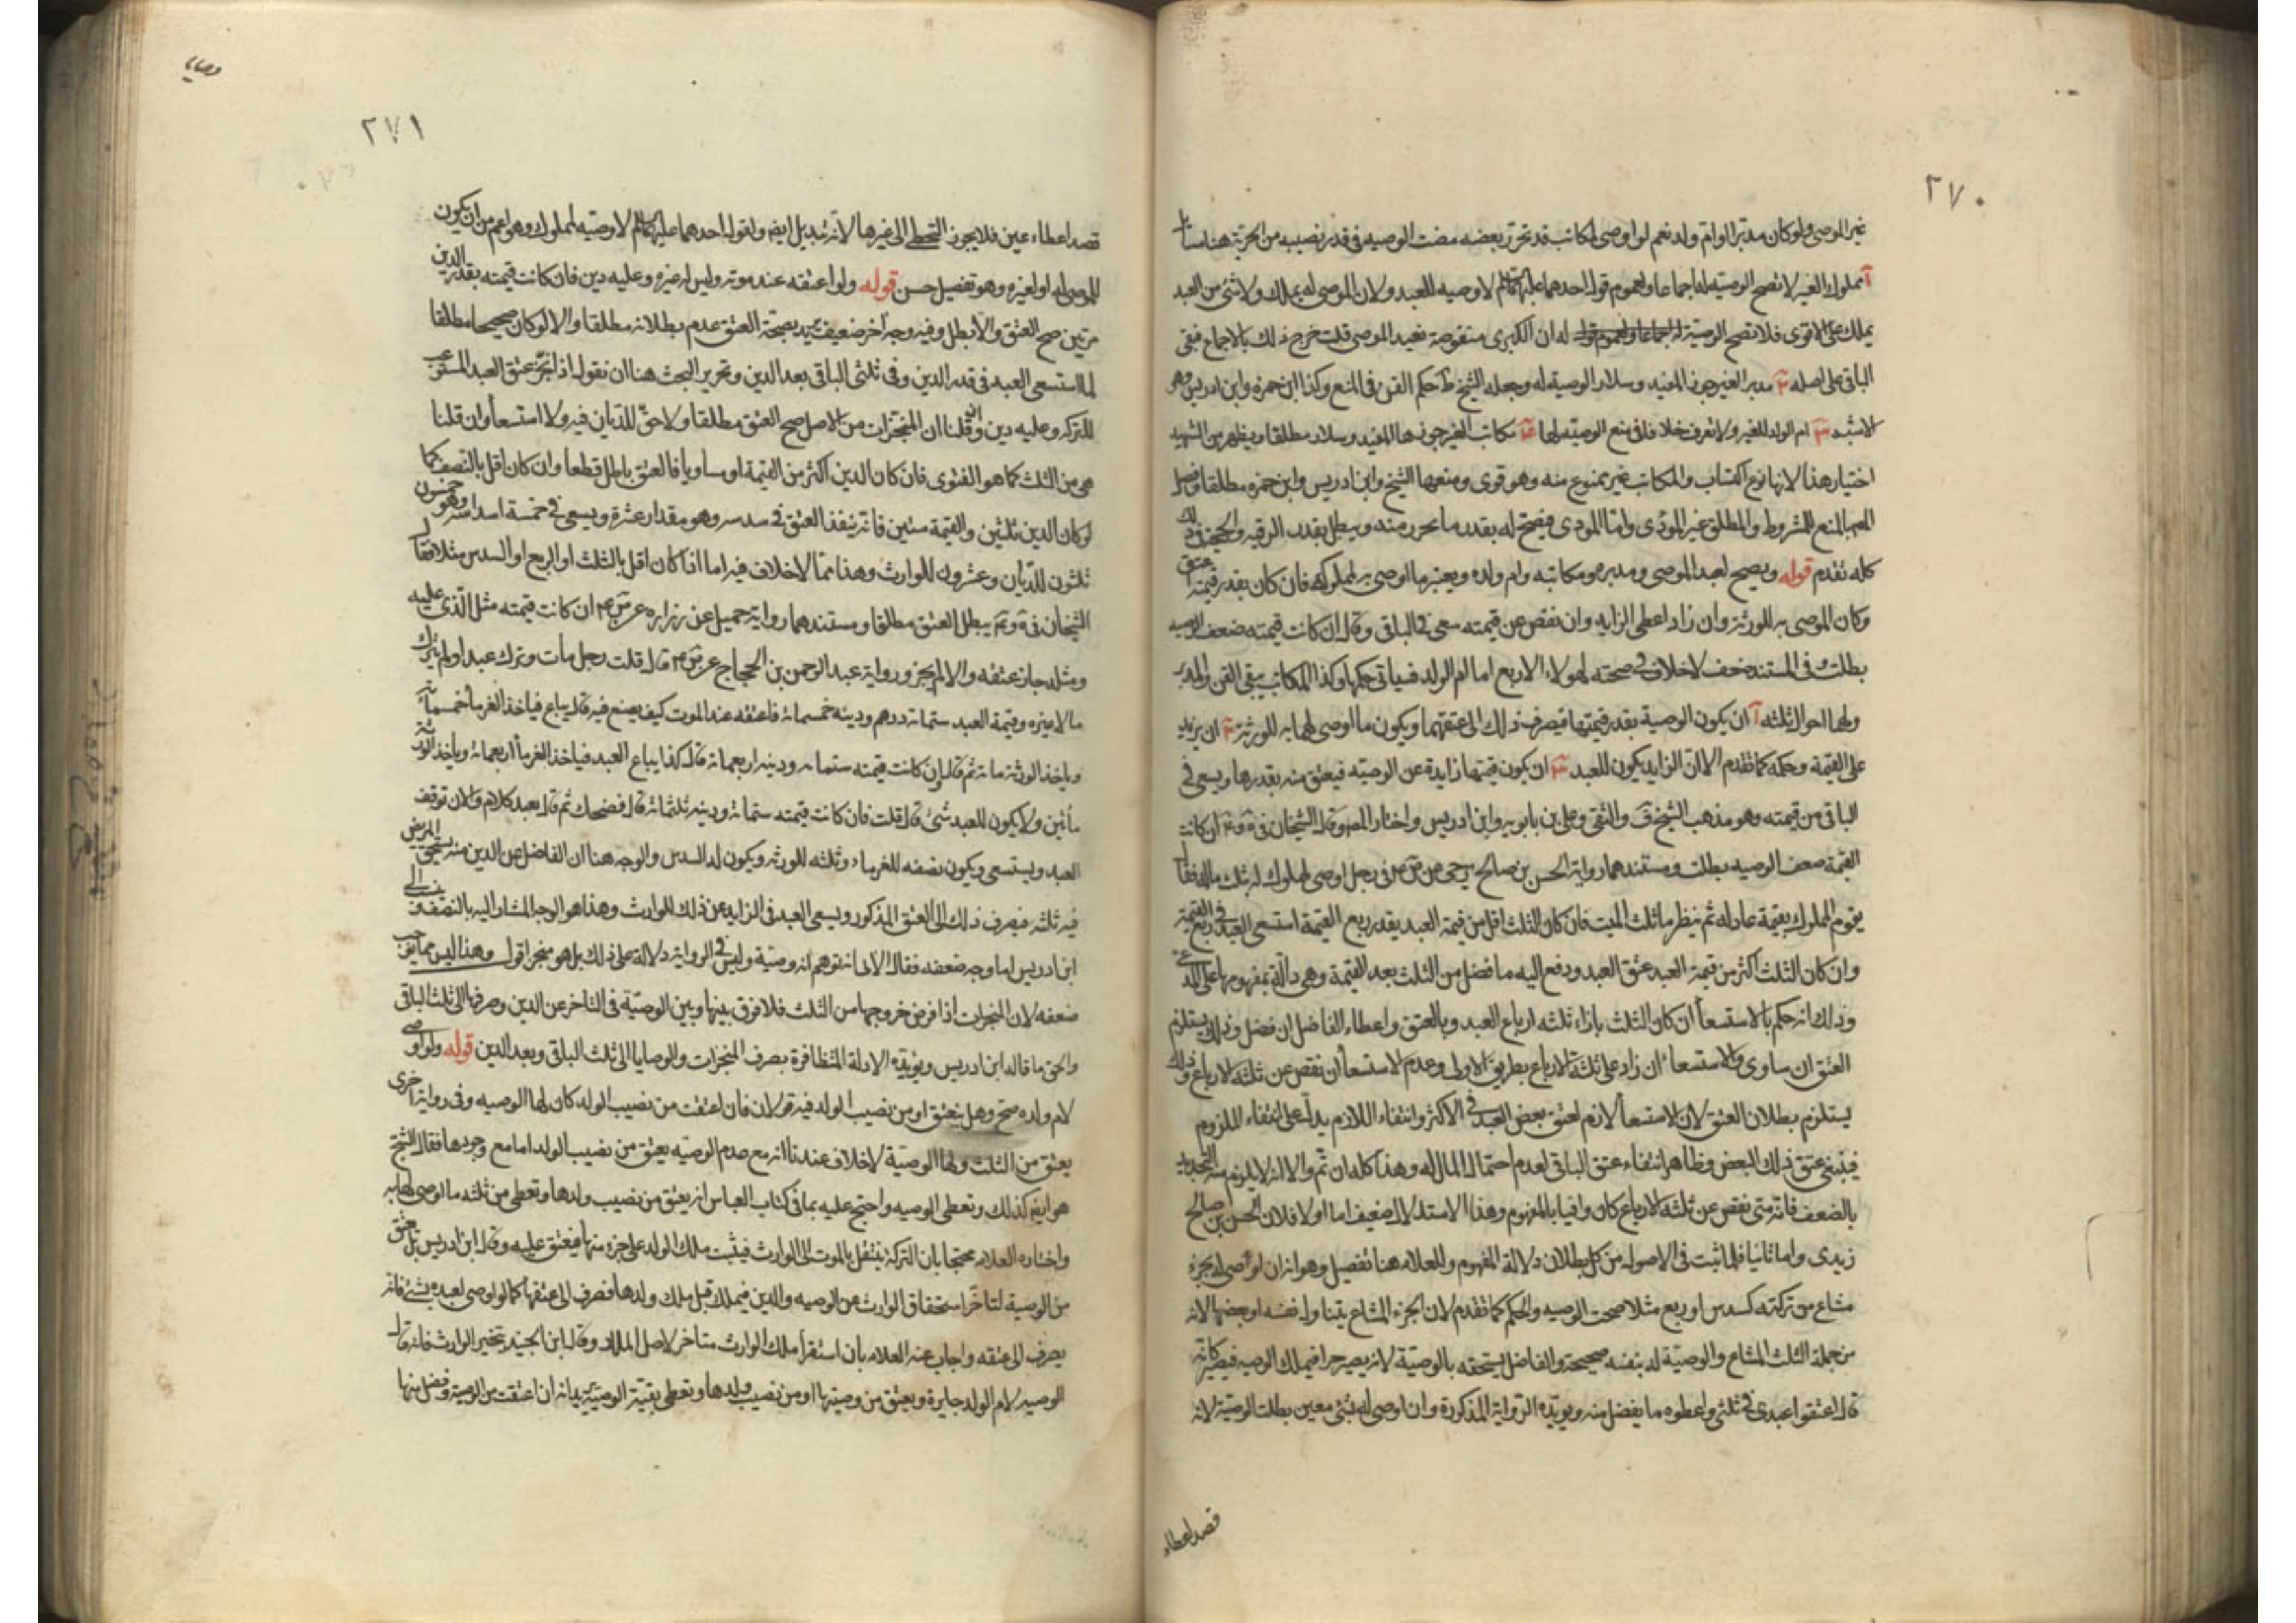 ٢٧٠
غير الموصى ولو كان مدبرا او ام ولد نعم لو اوصى لمكاتب قد تحرر بعضه مضت الوصيه فى قدر نصيبه من الحرية هنا مسائل
آ مملوك الغير لا تصح الوصية له اجماعا ولعموم قول احدهما عليهما السلم لا وصيه للعبد ولان الموصى له يملك ولا شئ من العبد
يملك على الاقوى فلا تصح الوصية له ان الكبرى منقوضة بعبد الموصى قلت خرج ذلك بالاجماع فبقى
الباقى على اصله ب مدبر الغير جوز المفيد وسلار الوصية له وجعله الشيخ ط حكم القن فى المنع وكذا ابن حمزه وابن ادريس وهو
الاشبه ج ام الولد للغير ولا نعرف خلافا فى منع الوصية لها د مكاتب الغير جوزها المفيد وسلار مطلقا ويظهر من الشهيد
اختيار هذا لانها نوع اكتساب والمكاتب غير ممنوع منه وهو قوى ومنعها الشيخ وابن ادريس وابن حمزه مطلقا وفصل
المص المنع للمشروط والمطلق غير المؤدى واما المودى فيصح له بقدر ما تحرر منه ويبطل بقدر الرقيه والحجة فى ذلك
كله تقدم قوله ويصح لعبد الموصى ومدبره ومكاتبه وام ولده ويعتبر ما اوصى به لمملوكه فان كان بقدر قيمته اعتق
وكان الموصى به للورثة وان زاد اعطى الزايد وان نقص عن قيمته سعى فى الباقى وقيل ان كانت قيمته ضعف الوصيه
بطلت وفى المستند ضعف لا خلاف فى صحته لهولاء الاربع اما ام الولد فسياتى حكمها وكذا المكاتب يبقى القن والمدبر
ولهما احوال ثلثه آ ان يكون الوصية بقدر قيمتها فيصرف ذلك الى عتقهما ويكون ما اوصى لهما به للورثة ب ان يزيد
على القيمة وحكمه كما تقدم الا ان الزايد يكون للعبد ج ان يكون قيمتها زايدة عن الوصيه فيعتق منه بقدرها ويسعى فى
الباقى من قيمته وهو مذهب الشيخ ف والتقى وعلى بن بابويه وابن ادريس واختار المص وقال الشيخان فى ان كانت
القيمة ضعف الوصيه بطلت ومستندهما رواية الحسن بن صالح بن حى عن فى رجل اوصى لمملوك له بثلث ماله فقال
يقوم المملوك بقيمة عادله ثم ينظر ما ثلث الميت فان كان الثلث اقل من قيمة العبد بقدر ربع القيمة استسعى العبد فى ربع القيمة
وان كان الثلث اكثر من قيمة العبد عتق العبد ودفع اليه ما فضل من الثلث بعد القيمة وهى دالة بمفهومها على المدعى
وذلك انه حكم بالاستسعا ان كان الثلث بازاء ثلثه ارباع العبد وبالعتق واعطاء الفاضل ان فضل وذلك يستلزم
العتق ان ساوى والاستسعا ان زاد على ثلثة الارباع بطريق الاولى وعدم الاستسعا ان نقص عن ثلثه الارباع وذلك
يستلزم بطلان العتق لان الاستسعا لازم لعتق بعض العبد فى الاكثر وانتفاء اللازم يدل على انتفاء الملزوم
فينبغى عتق ذلك البعض وظاهر انتفاء عتق الباقى لعدم احتمال المال له وهذا كله ان تم والا انه لا يلزم منه التحديد
بالضعف فانه متى نقص عن ثلثه الارباع كان وافيا بالمفهوم وهذا الاستدلال ضعيف اما اولا فلان الحسن بن صالح
زيدى واما ثانيا فلما ثبت فى الاصول من كل بطلان دلالة المفهوم وللعلامه هنا تفصيل وهو انه ان اوصى له بجزء
مشاع من تركته كسدس او ربع مثلا صحت الوصيه والحكم كما تقدم لان الجزء المشاع يتناول نفسه او بعضها لانه
من جملة الثلث المشاع والوصية له بنفسه صحيحة والفاضل يستحقه بالوصية لانه يصير حرا فيملك الوصيه فيصير كانه
قال اعتقوا عبدى فى ثلثى واعطوه ما يفضل منه ويؤيده الرواية المذكورة وان اوصى له بشئ معين بطلت الوصية لانه
قصد اعطاء
وصايا
٢٧١
قصد اعطاء عين فلا يجوز التخطى الى غيرها لانه تبديل ايضا ولقول احدهما عليهما السلم لا وصيه لمملوك وهو اعم من ان يكون
للموصى له او لغيره وهو تفصيل حسن قوله ولو اعتقه عند موته وليس له غيره وعليه دين فان كانت قيمته بقدر الدين
مرتين صح العتق والا بطل وفيه وجه آخر ضعيف يريد بصحة العتق عدم بطلانه مطلقا والا لو كان صحيحا مطلقا
لما استسعى العبد فى قدر الدين وفى ثلثى الباقى بعد الدين وتحرير البحث هنا ان نقول اذا نجز عتق العبد المستوعب
للتركه وعليه دين وقلنا ان المنجزات من الاصل صح العتق مطلقا ولا حق للديان فيه ولا استسعا وان قلنا
هى من الثلث كما هو الفتوى فان كان الدين اكثر من القيمة او مساويا فالعتق باطل قطعا وان كان اقل بالنصف كما
لو كان الدين ثلثين والقيمة ستين فانه ينفذ العتق فى سدسه وهو مقدار عشرة ويسعى فى خمسة اسداسه وهو خمسون
ثلثون للديان وعشرون للوارث وهذا مما لا خلاف فيه اما اذا كان اقل بالثلث او الربع او السدس مثلا فقال
الشيخان فى يبطل العتق مطلقا ومستندهما رواية جميل عن زراره عن ان كانت قيمته مثل الذى عليه
ومثله جاز عتقه والا لم يجز ورواية عبد الرحمن بن الحجاج عن قال قلت رجل مات وترك عبدا ولم يترك
مالا غيره وقيمة العبد ستمائة درهم ودينه خمسمائة فاعتقه عند الموت كيف يصنع فيه قال يباع فياخذ الغرما خمسمائة
وياخذ الورثة مائة ثم قال ان كانت قيمته ستمائه ودينه اربعمائة قال كذا يباع العبد فياخذ الغرما اربعمائة وياخذ الورثة
مأتين ولا يكون للعبد شئ قال قلت فان كانت قيمته ستمائة ودينه ثلثمائة قال فضحك ثم قال بعد كلام والان توقف
العبد ويستسعى ويكون نصفه للغرماء وثلثه للورثه ويكون له السدس والوجه هنا ان الفاضل عن الدين منه يستحق المريض
فيه ثلثه فيصرف ذلك الى العتق المذكور ويسعى العبد فى الزايد عن ذلك للوارث وهذا هو الوجه المشار اليه بالضعف ونسب الى
ابن ادريس اما وجه ضعفه فقال الابى انه توهم انه وصية وليس فى الرواية دلالة على ذلك بل هو منجز اقول وهذا ليس مما يوجب
ضعفه لان المنجزات اذا فرض خروجها من الثلث فلا فرق بينها وبين الوصية فى التاخر عن الدين وصرفها الى ثلث الباقى
والحق ما قاله ابن ادريس ويؤيده الادلة المتظافرة بصرف المنجزات والوصايا الى ثلث الباقى وبعد الدين قوله ولو اوصى
لام ولده صح وهل ينعتق او من نصيب الولد فيه قولان فان اعتقت من نصيب الولد كان لها الوصيه وفى رواية اخرى
يعتق من الثلث ولها الوصية لا خلاف عندنا انه مع عدم الوصيه يعتق من نصيب الولد اما مع وجودها فقال الشيخ
هو ايضا كذلك وتعطى الوصيه واحتج عليه بما فى كتاب العباس انه يعتق من نصيب ولدها وتعطى من ثلثه ما اوصى لها به
واختاره العلامه محتجا بان التركة ينتقل بالموت الى الوارث فيثبت ملك الولد على جزء منها فيعتق عليه وقال ابن ادريس بل تعتق
من الوصية لتاخر استحقاق الوارث عن الوصيه والدين فيملك قبل ملك ولدها فصرف الى عتقها كما لو اوصى لعبده بشئ فانه
يصرف الى عتقه واجاب عنه العلامه بان استقرار ملك الوارث متاخر لا اصل الملك وقال ابن الجنيد تخير الوارث فانه قال
الوصيه لام الولد جايزة ويعتق من وصيتها او من نصيب ولدها وتعطى بقية الوصية يريد انه ان اعتقت من الوصية وفضل منها